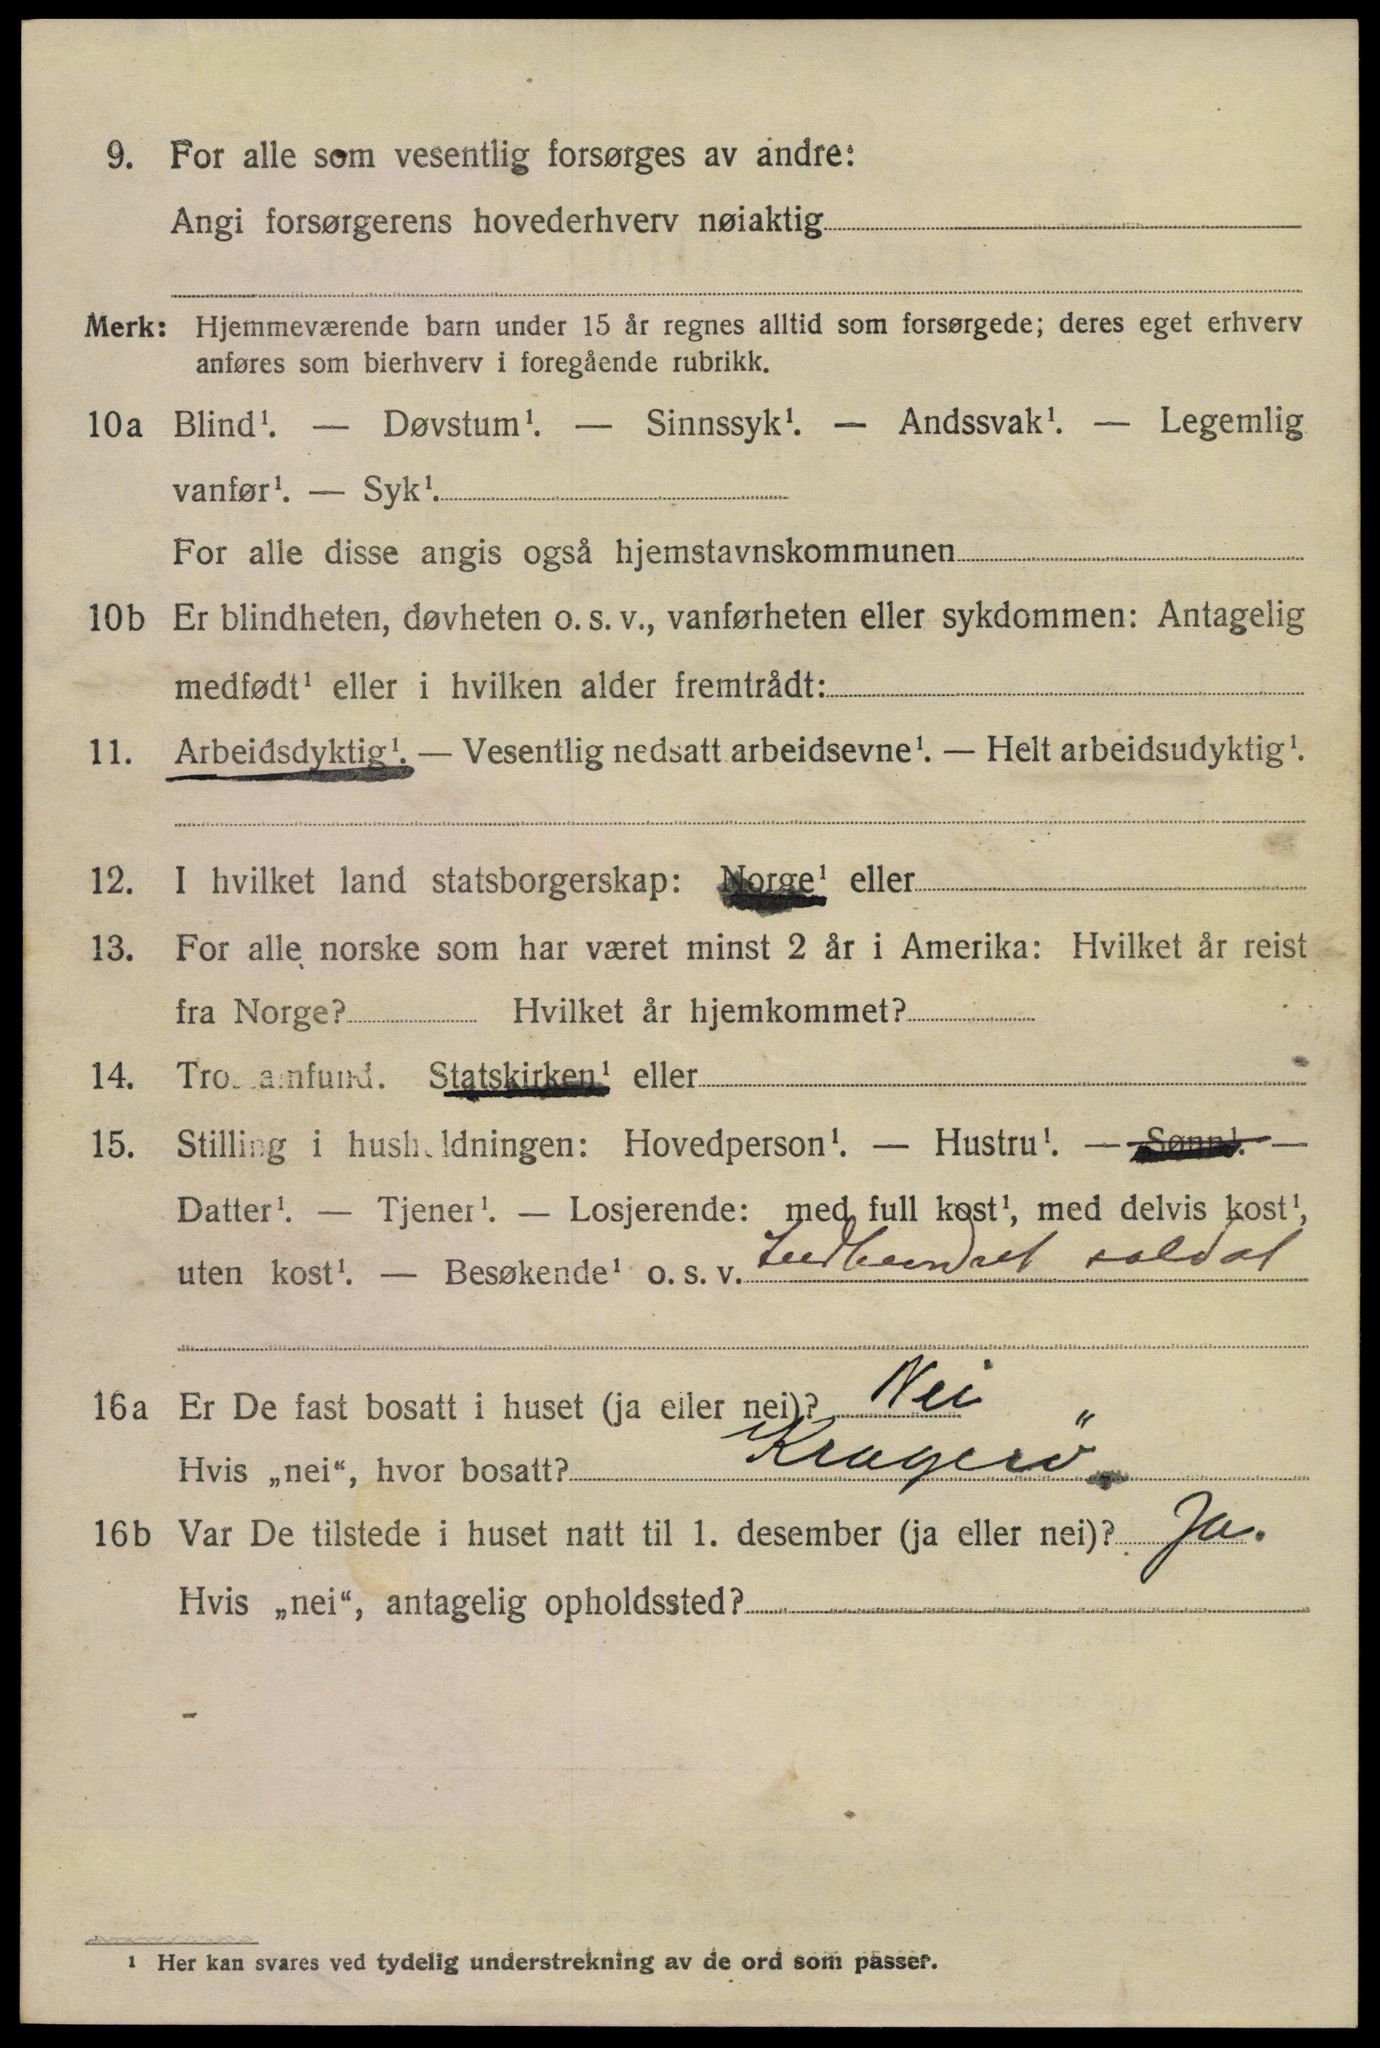 9. For alle som vesentlig forsørges av andre:
Angi forsørgerens hovederhverv nøiaktig
Merk: Hjemmeværende barn under 15 år regnes alltid som forsørgede; deres eget erhverv
anføres som bierhverv i foregående rubrikk.
10a Blind¹. — Døvstum¹. — Sinnssyk¹. — Andssvak¹. — Legemlig
vanfør¹. — Syk¹.
For alle disse angis også hjemstavnskommunen
10b Er blindheten, døvheten o. s. v., vanførheten eller sykdommen: Antagelig
medfødt¹ eller i hvilken alder fremtrådt:
11. Arbeidsdyktig¹. — Vesentlig nedsatt arbeidsevne¹. — Helt arbeidsudyktig¹.
12. I hvilket land statsborgerskap: Norge¹ eller
13. For alle norske som har været minst 2 år i Amerika: Hvilket år reist
fra Norge? Hvilket år hjemkommet?
14. Trossamfund. Statskirken¹ eller
15. Stilling i husholdningen: Hovedperson¹. — Hustru¹. — Sønn¹. —
Datter¹. — Tjener¹. — Losjerende: med full kost¹, med delvis kost¹,
uten kost¹. — Besøkende¹ o. s. v. soldat
16a Er De fast bosatt i huset (ja eller nei)? Nei
Hvis „nei“, hvor bosatt? Kragerö
16b Var De tilstede i huset natt til 1. desember (ja eller nei)? Ja.
Hvis „nei“, antagelig opholdssted?
¹ Her kan svares ved tydelig understrekning av de ord som passer.